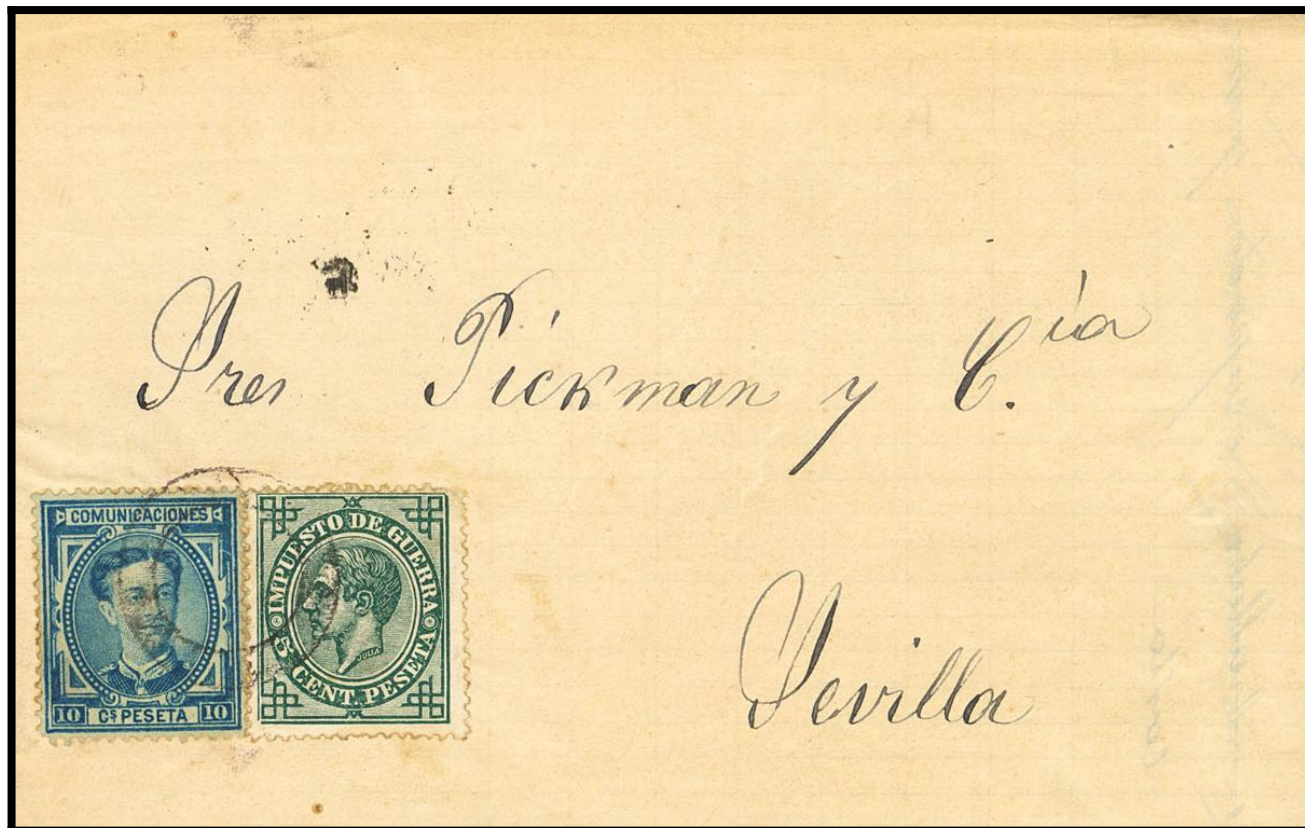 Sres Pickman y C.ía
Sevilla
COMUNICACIONES
10 Cs PESETA 10
IMPUESTO DE GUERRA
5 CENT. PESETA
JULIA